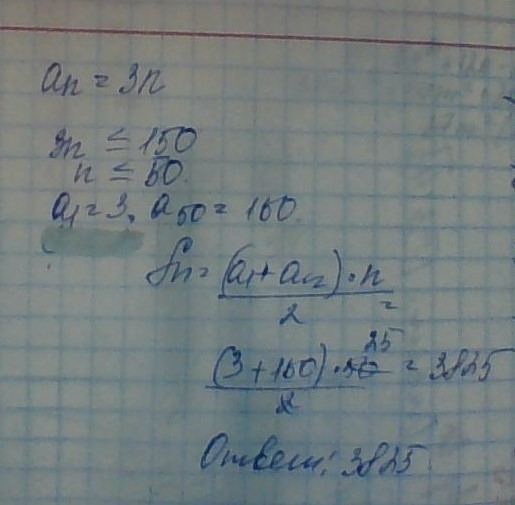 aₙ = 3n
3n ≤ 150
n ≤ 50.
a₁ = 3, a₅₀ = 150.
Sₙ = (a₁ + aₙ) · n / 2 =
(3 + 150) · 50 25 / 2 = 3825
Ответ: 3825